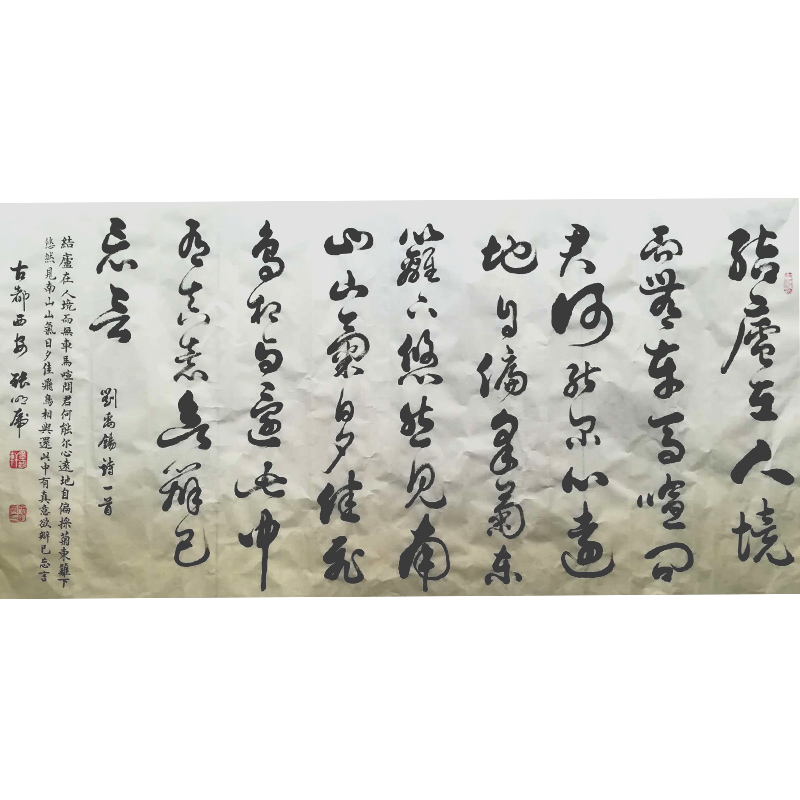 結廬在人境
而無車馬喧問
君何能尔心遠
地自偏采菊东
籬下悠然見南
山山氣日夕佳飛
鳥相与還此中
有真意欲辨已
忘言
劉禹錫詩一首
結廬在人境而無車馬喧問君何能尔心遠地自偏採菊東籬下
悠然見南山山氣日夕佳飛鳥相與還此中有真意欲辦已忘言
古都西安 張